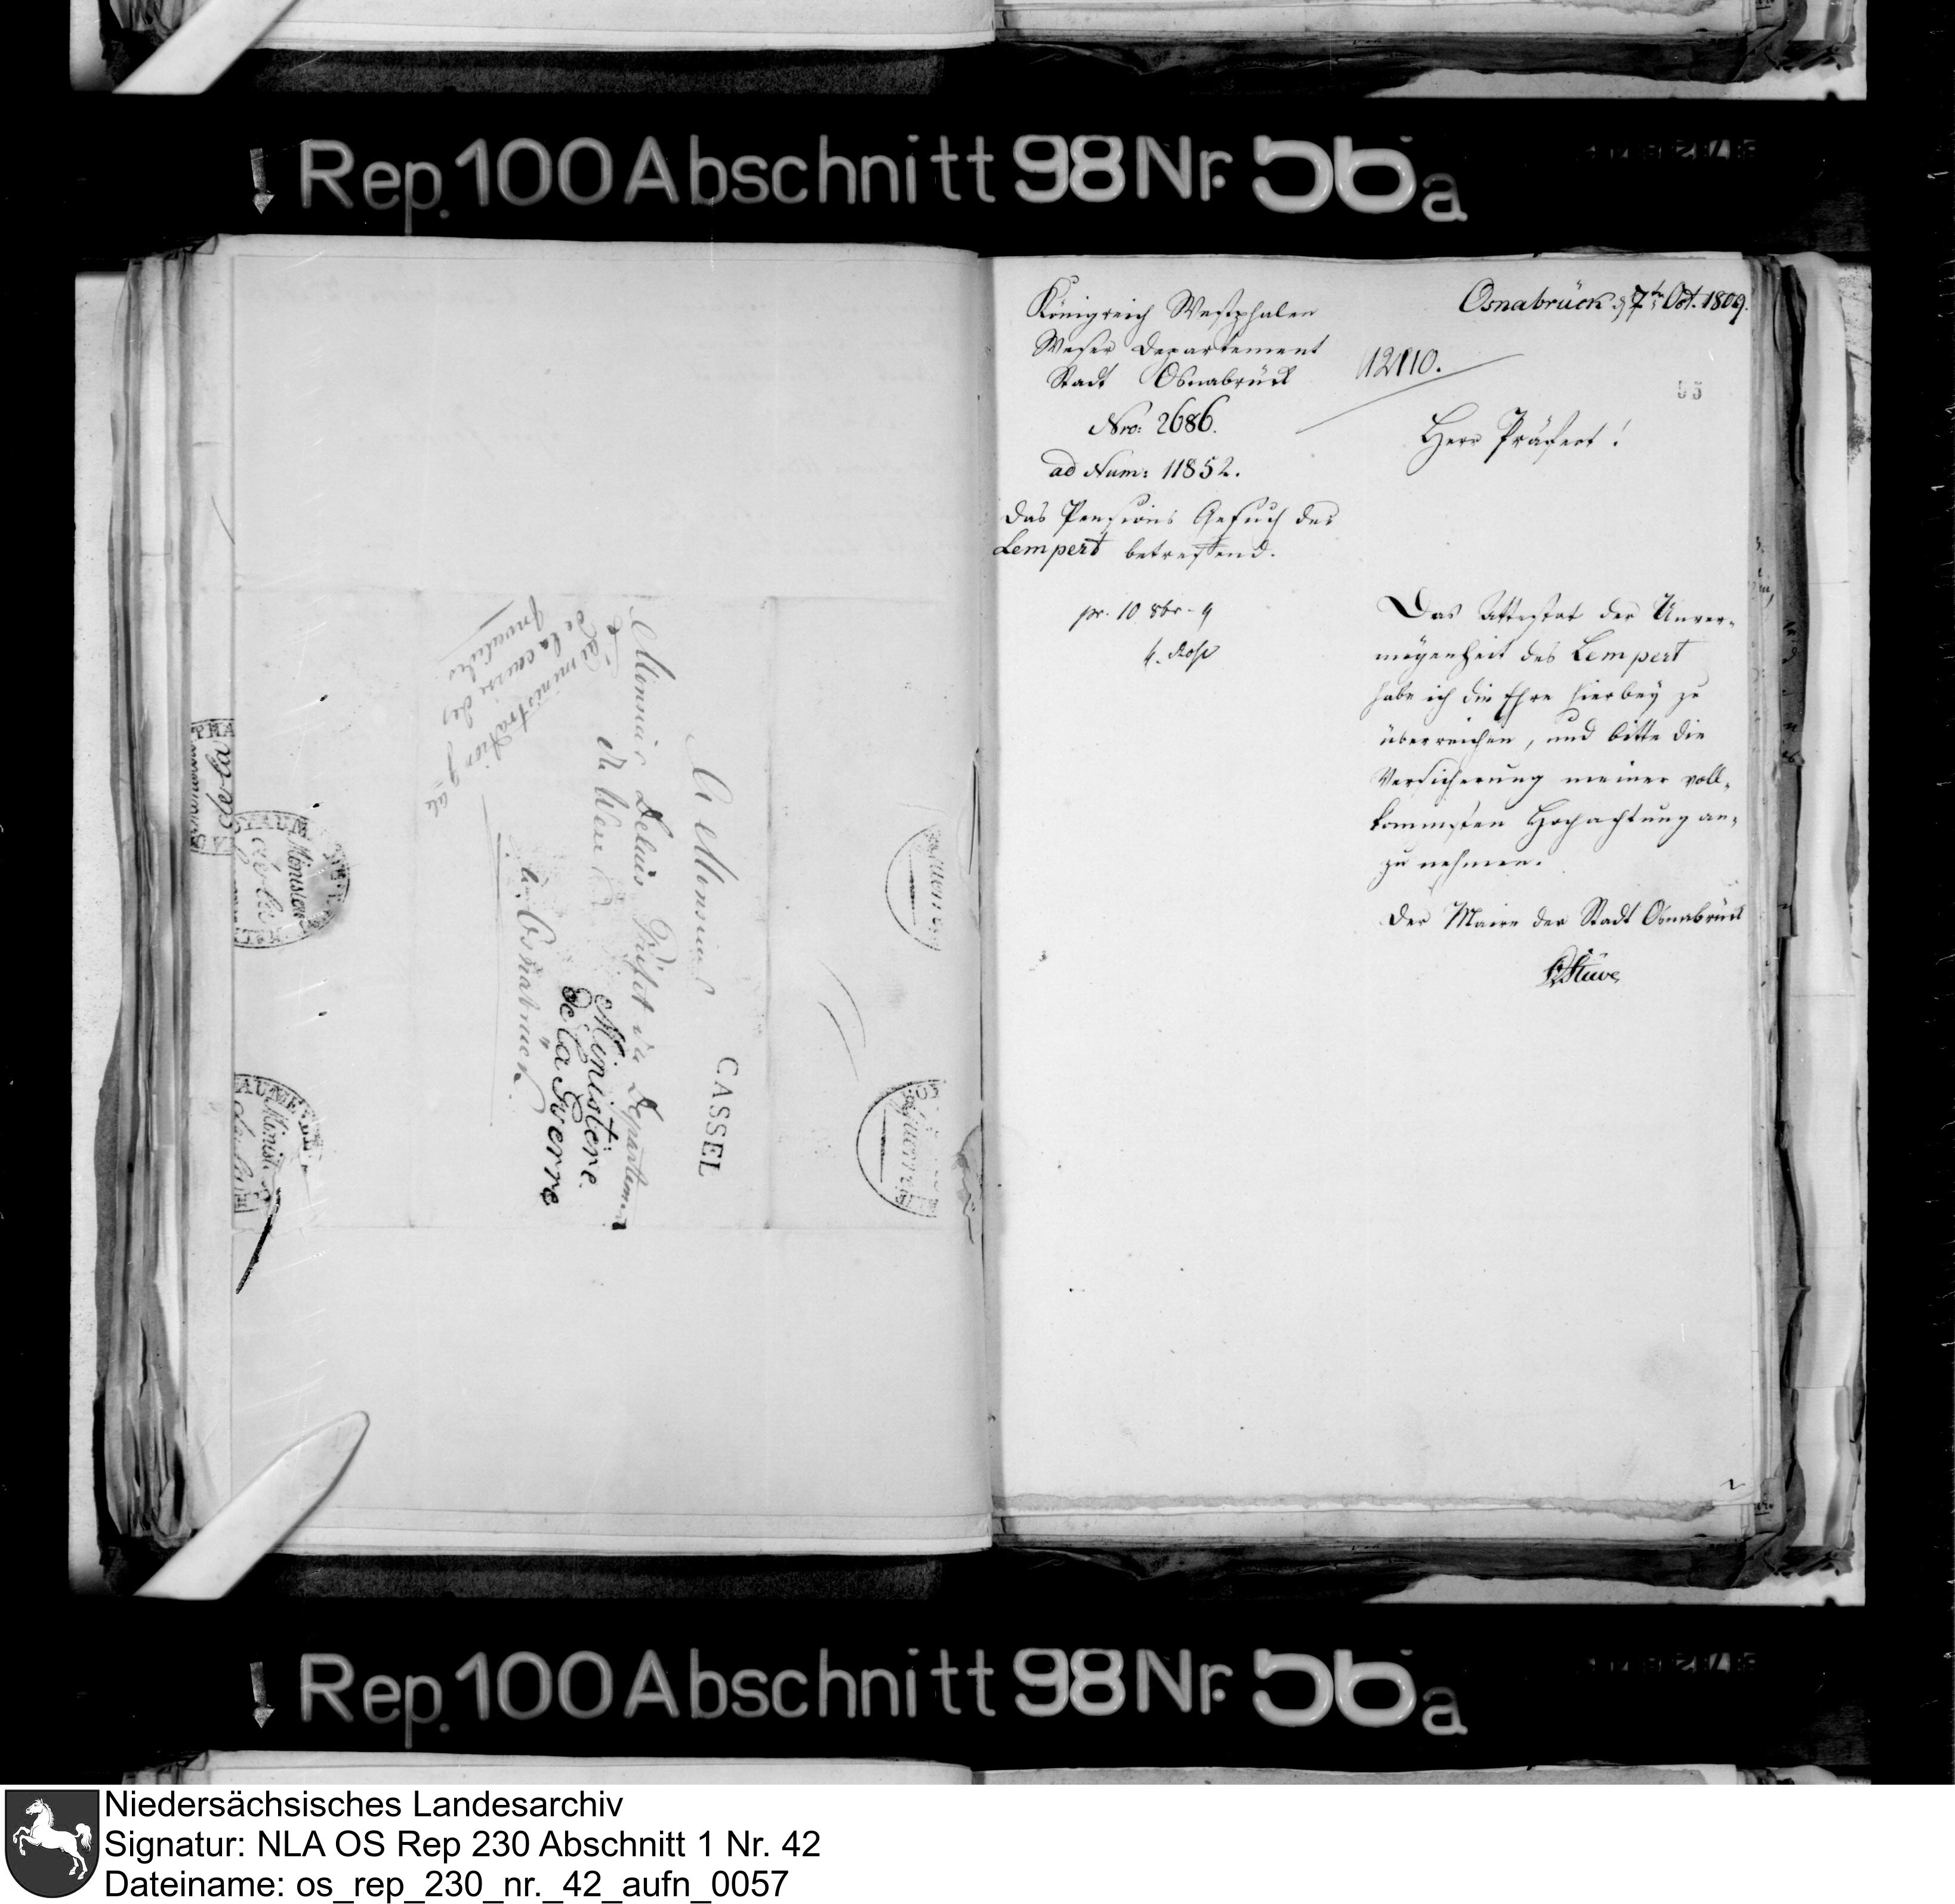 Rep. 100 Abschnitt 98 Nr. 56a
A Monsieur
CASSEL
Monsieur Delius Préfet du Departement
du Weser
Ministère
de la Guerre
à Osnabruck.
Administration g.ale
de la caisse des
Invalides
Königreich Westphalen
Weser Departement
Stadt Osnabrück
Nro: 2686.
ad Num: 11852.
Das Pensions Gesuch des
Lempert betreffend.
pr. 10 8br. 9
Osnabrück, d 7ten Oct. 1809.
12110.
95
Herr Präfect!
Das Attestat der Unver-
mögenheit des Lempert
habe ich die Ehre hierbey zu
überreichen, und bitte die
Versicherung meiner voll-
kommsten Hochachtung an-
zu nehmen.
Der Maire der Stadt Osnabrück
Stüve
Rep. 100 Abschnitt 98 Nr. 56a
Niedersächsisches Landesarchiv
Signatur: NLA OS Rep 230 Abschnitt 1 Nr. 42
Dateiname: os_rep_230_nr._42_aufn_0057